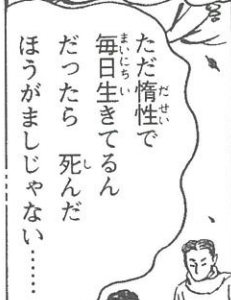 ただ惰性で
毎日生きてるん
だったら　死んだ
ほうがましじゃない……